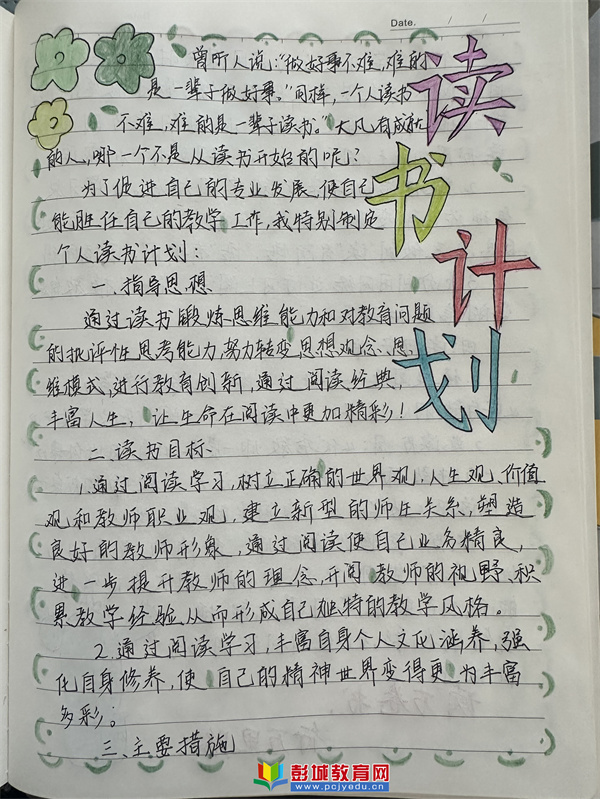 Date.
曾听人说:"做好事不难,难的
是一辈子做好事。"同样,一个人读书
不难,难的是一辈子读书。"大凡有成就
的人,哪一个不是从读书开始的呢?
为了促进自己的专业发展,使自己
能胜任自己的教学工作,我特别制定
个人读书计划:
读书计划
一、指导思想
通过读书锻炼思维能力和对教育问题
的批评性思考能力,努力转变思想观念、思
维模式,进行教育创新,通过阅读经典,
丰富人生,让生命在阅读中更加精彩!
二、读书目标
1.通过阅读学习,树立正确的世界观、人生观、价值
观和教师职业观,建立新型的师生关系,塑造
良好的教师形象,通过阅读使自己业务精良,
进一步提升教师的理念,开阔教师的视野,积
累教学经验,从而形成自己独特的教学风格。
2.通过阅读学习,丰富自身个人文化涵养,强
化自身修养,使自己的精神世界变得更为丰富
多彩。
三、主要措施
彭城教育网
www.pcjyedu.cn